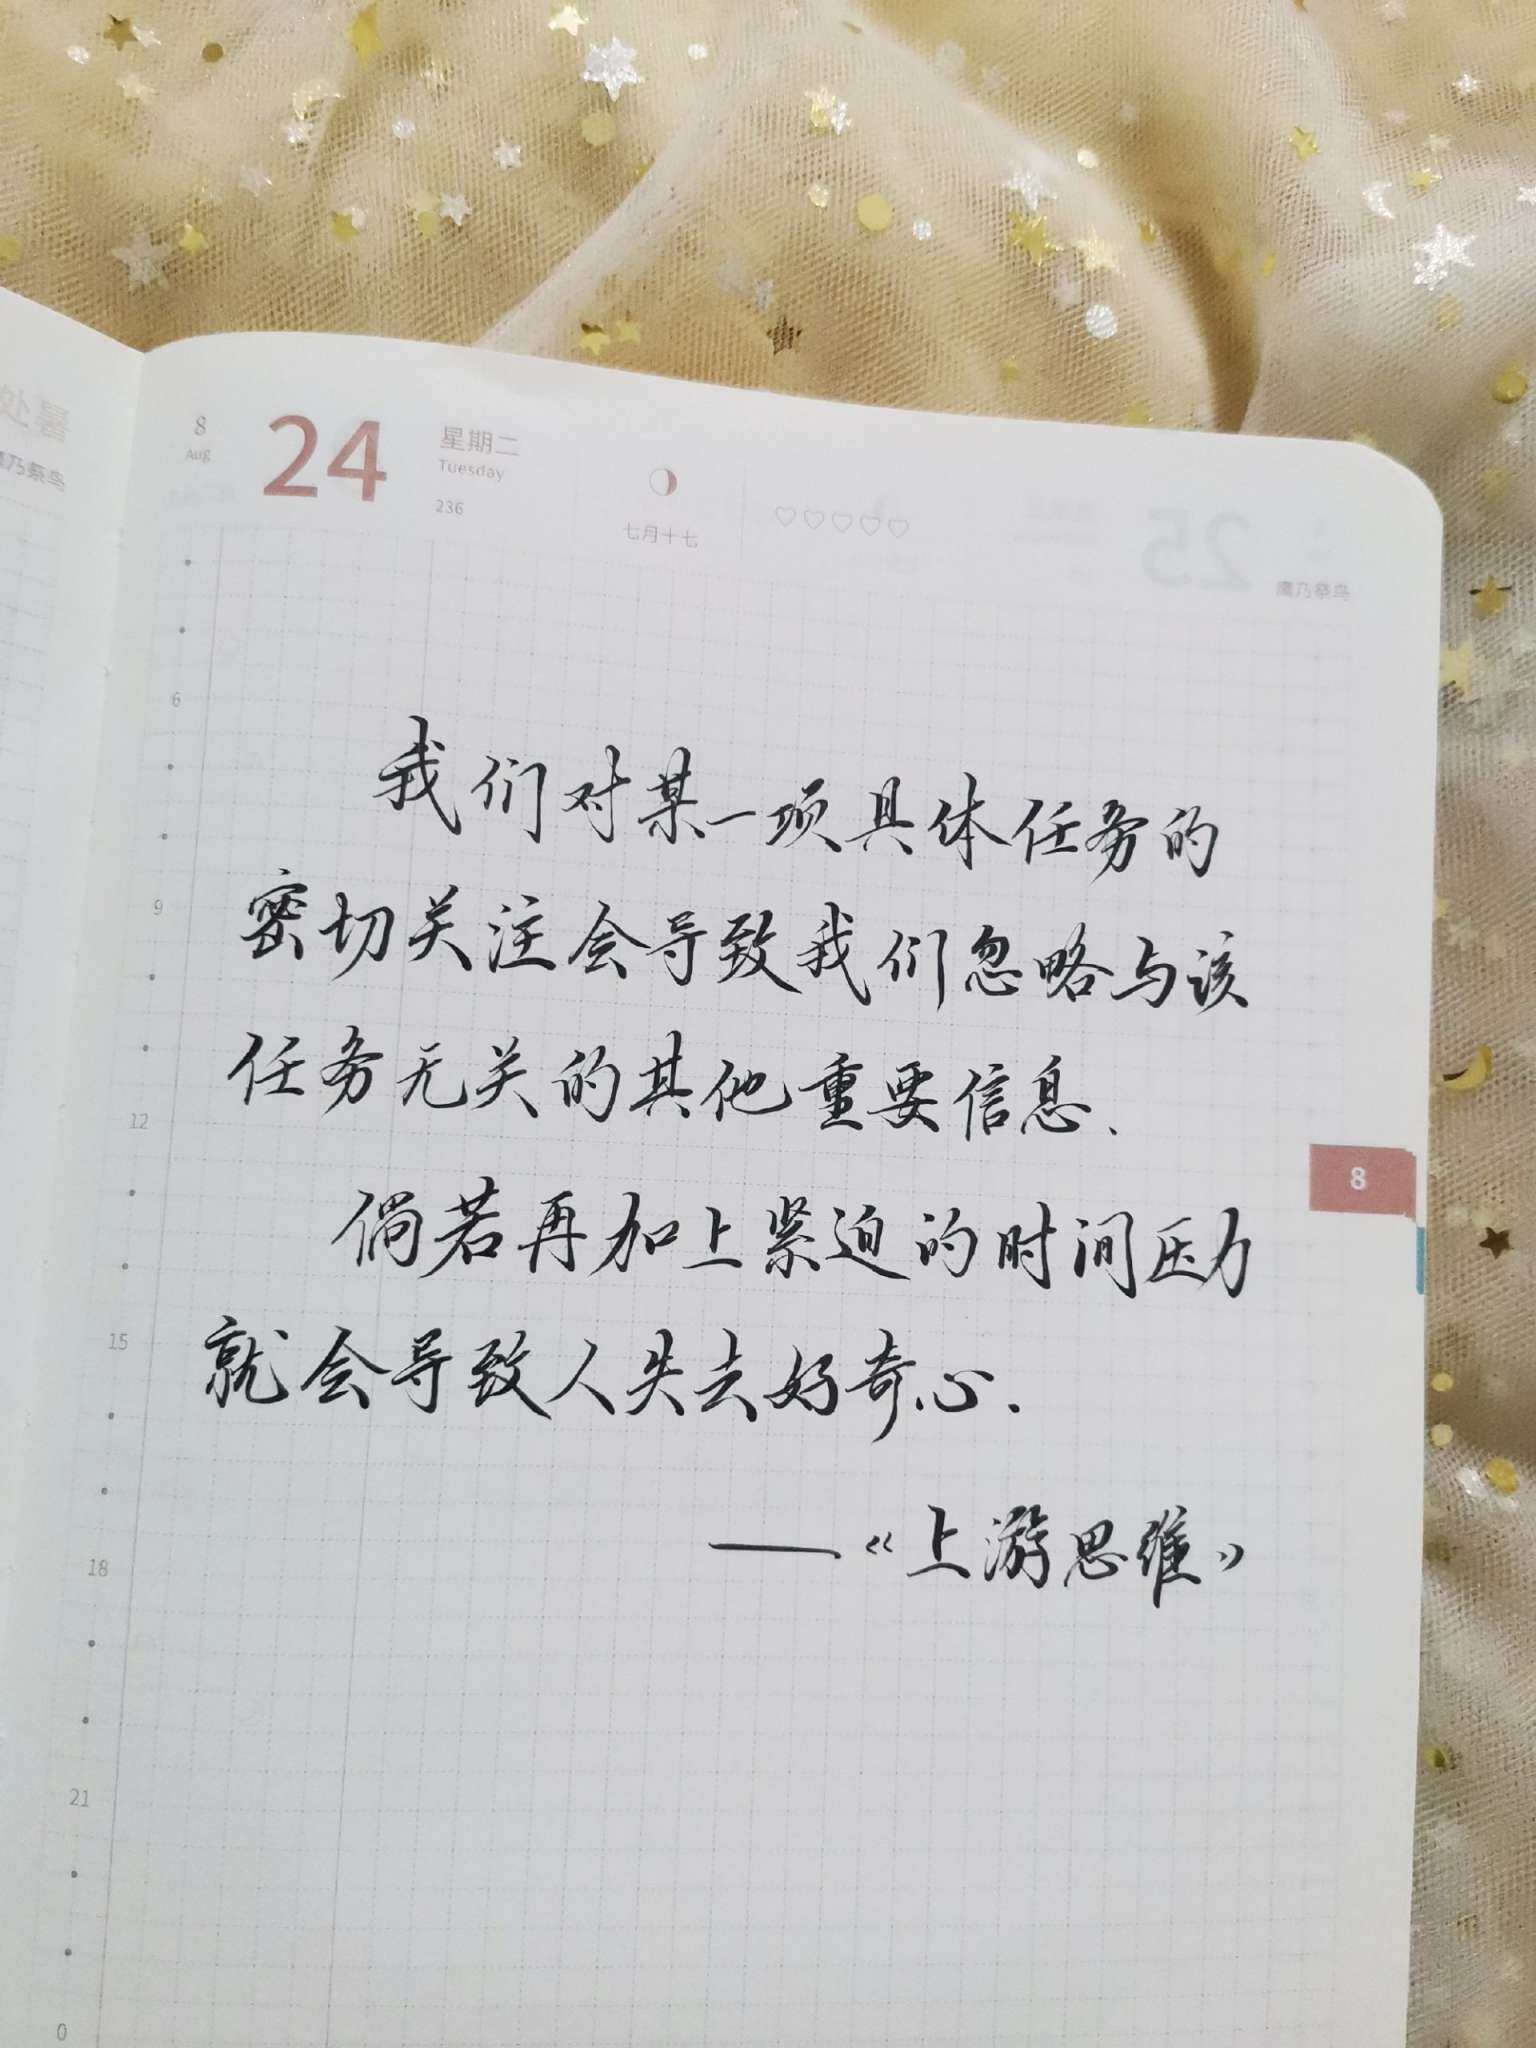 处暑
鹰乃祭鸟
8
Aug
24
星期二
Tuesday
236
七月十七
25
鹰乃祭鸟
6
我们对某一项具体任务的
9
密切关注会导致我们忽略与该
任务无关的其他重要信息.
12
8
倘若再加上紧迫的时间压力
15
就会导致人失去好奇心.
——《上游思维》
18
21
0